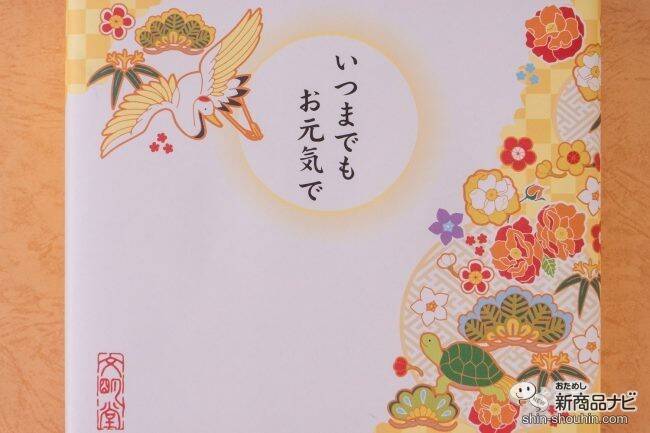 いつまでも
お元気で
文明堂
おためし
新商品ナビ
NEW
shin-shouhin.com